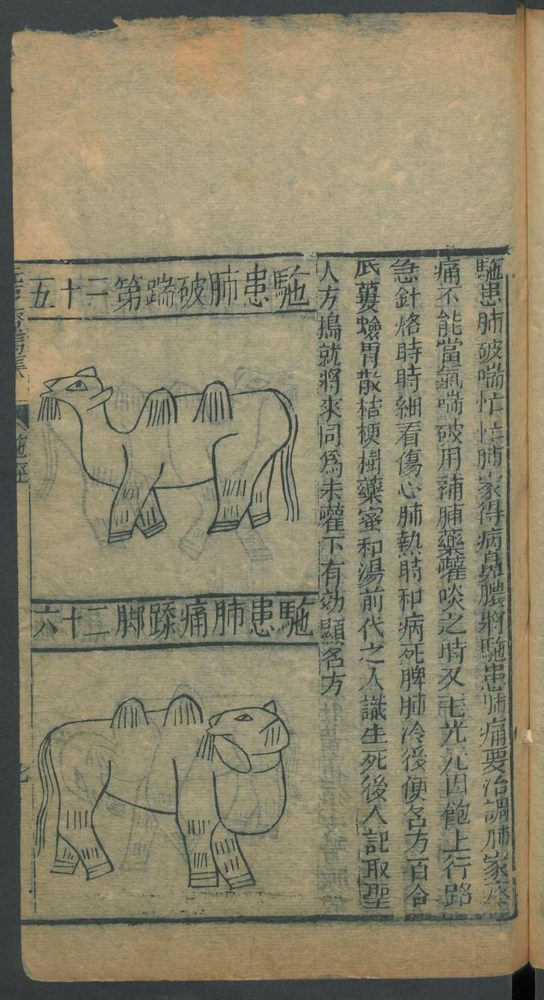 駞患肺破喘忙忙肺家得病鼻膿將駞患肺痛要治調肺家疼
痛不能當氣喘破用補肺藥雚啖之時又毛光光因飽上行路
急針烙時時細看傷心肺熱時和病死脾肺冷後便名方百合
芪蔞蛤胃散桔梗樹藥蜜和湯前代之人識生死後人記取聖
人方搗就將來同為未雚下有効顯名方
駞患肺破喘第二十五
駞患肺痛蹂脚二十六
駞經